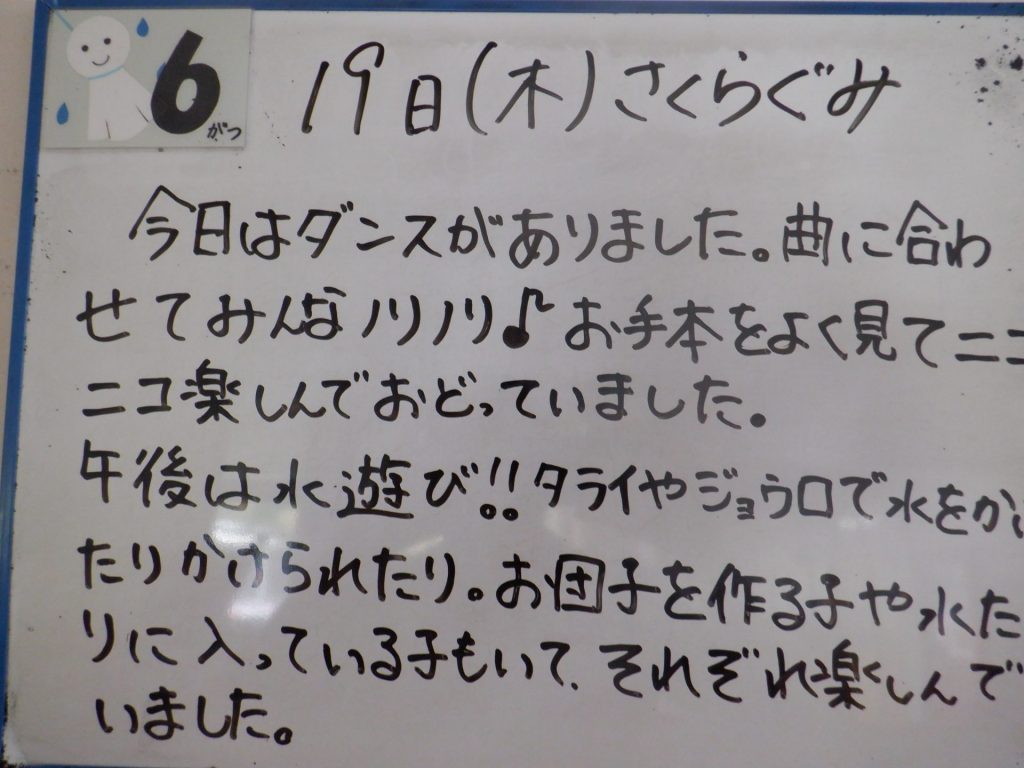 6がつ 19日(木)さくらぐみ
今日はダンスがありました。曲に合わ
せてみんなノリノリ♪お手本をよく見てニコ
ニコ楽しんでおどっていました。
午後は水遊び!!タライやジョウロで水をかけ
たりかけられたり。お団子を作る子や水た
りに入っている子もいて、それぞれ楽しんで
いました。